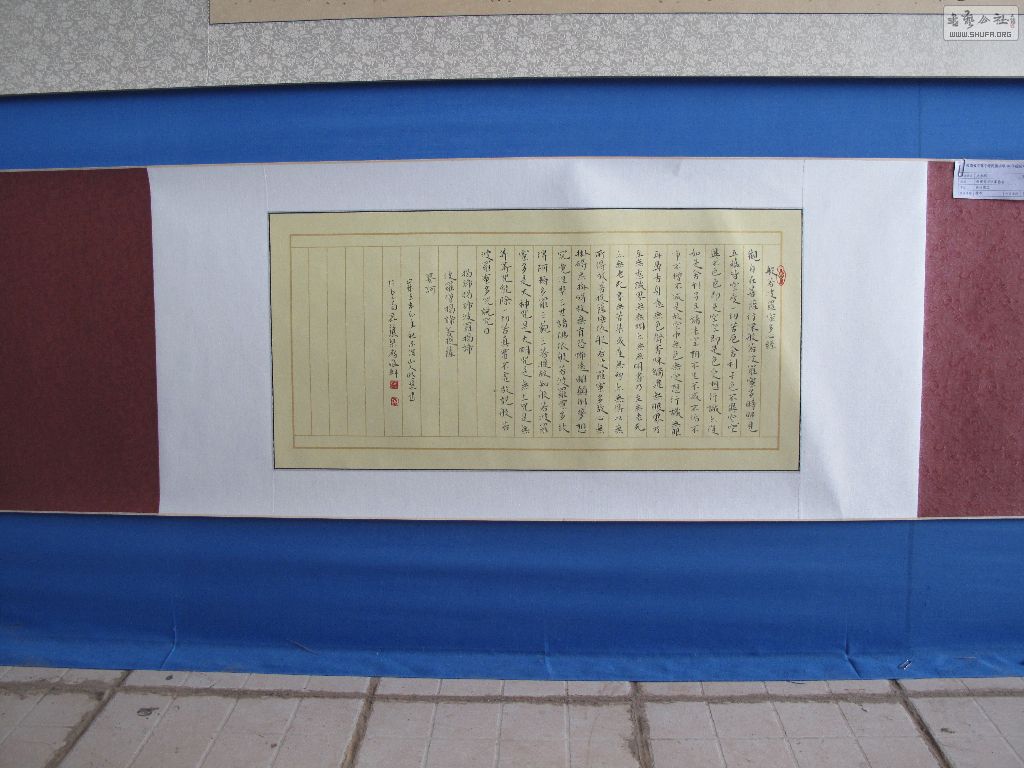 般若波羅蜜多心經
觀自在菩薩行深般若波羅蜜多時照見
五蘊皆空度一切苦厄舍利子色不異空空
不異色色即是空空即是色受想行識亦復
如是舍利子是諸法空相不生不滅不垢不
淨不增不減是故空中無色無受想行識無眼
耳鼻舌身意無色聲香味觸法無眼界乃
至無意識界無無明亦無無明盡乃至無老死
亦無老死盡無苦集滅道無智亦無得以無
所得故菩提薩埵依般若波羅蜜多故心無
掛礙無掛礙故無有恐怖遠離顛倒夢想
究竟涅槃三世諸佛依般若波羅蜜多故
得阿耨多羅三藐三菩提故知般若波羅
蜜多是大神咒是大明咒是無上咒是無
等等咒能除一切苦真實不虛故說般若
波羅蜜多咒說咒曰
揭諦揭諦波羅揭諦
波羅僧揭諦菩提薩
婆訶
WWW.SHUFA.ORG